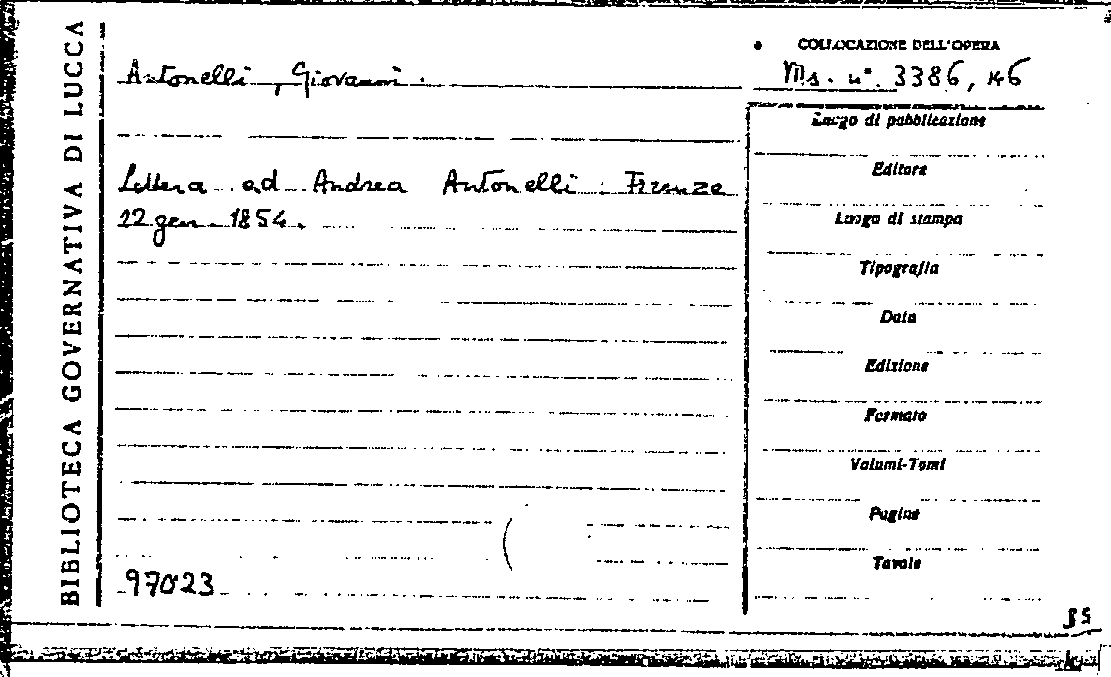 BIBLIOTECA GOVERNATIVA DI LUCCA
Antonelli, Giovanni.
Lettera ad Andrea Antonelli. Firenze
22 gen. 1854.
97023
COLLOCAZIONE DELL'OPERA
Ms. n°. 3386, 146
Luogo di pubblicazione
Editore
Luogo di stampa
Tipografia
Data
Edizione
Formato
Volumi-Tomi
Pagine
Tavole